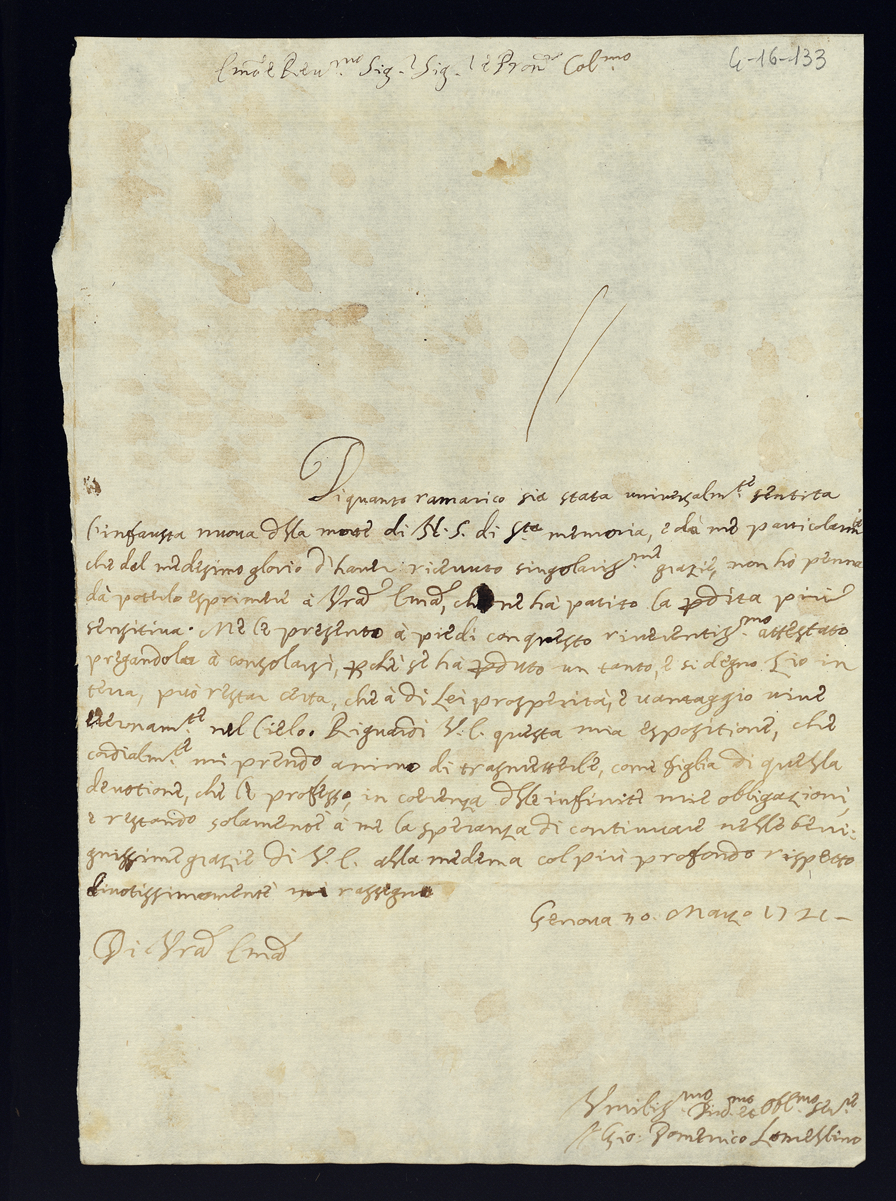 4-16-133
Em.ã e Reu.mo Sig.r Sig.r e Pron.e Col.mo
Di quanto ramarico sia stata universalm.te sentita
l'infausta nuova della morte di N. S. di S.ta memoria, e dà me particolarm.te
che del medesimo glorio d'hauer riceuuto singolariss.me grazie, non hò penna
dà poterlo esprimere à Vrã Emã, che ne hà patito la pdita più
sensitiua. Me le presento à piedi con questo riuerentiss.mo attestato
pregandola à consolarsi, pche se hà pduto un tanto, e si degno Zio in
terra, può restar certa, che à di Lei prosperità, e uantaggio uiue
eternam.te nel Cielo. Riguardi V. E. questa mia espositione, che
cordialm.te mi prendo animo di trasmetterle, come figlia di quella
deuotione, che le professo, in coerenza delle infinite mie obligazioni,
e restando solamente à me la speranza di continuare nelle beni-
gnissime grazie di V. E. alla medema col più profondo rispetto
diuotissimamente mi rassegno
Genoua 30. Marzo 1721 -
Di Vrã Emã
Vmiliss.mo Diu.mo et Obl.mo Ser.e
Gio: Domenico Lomellino